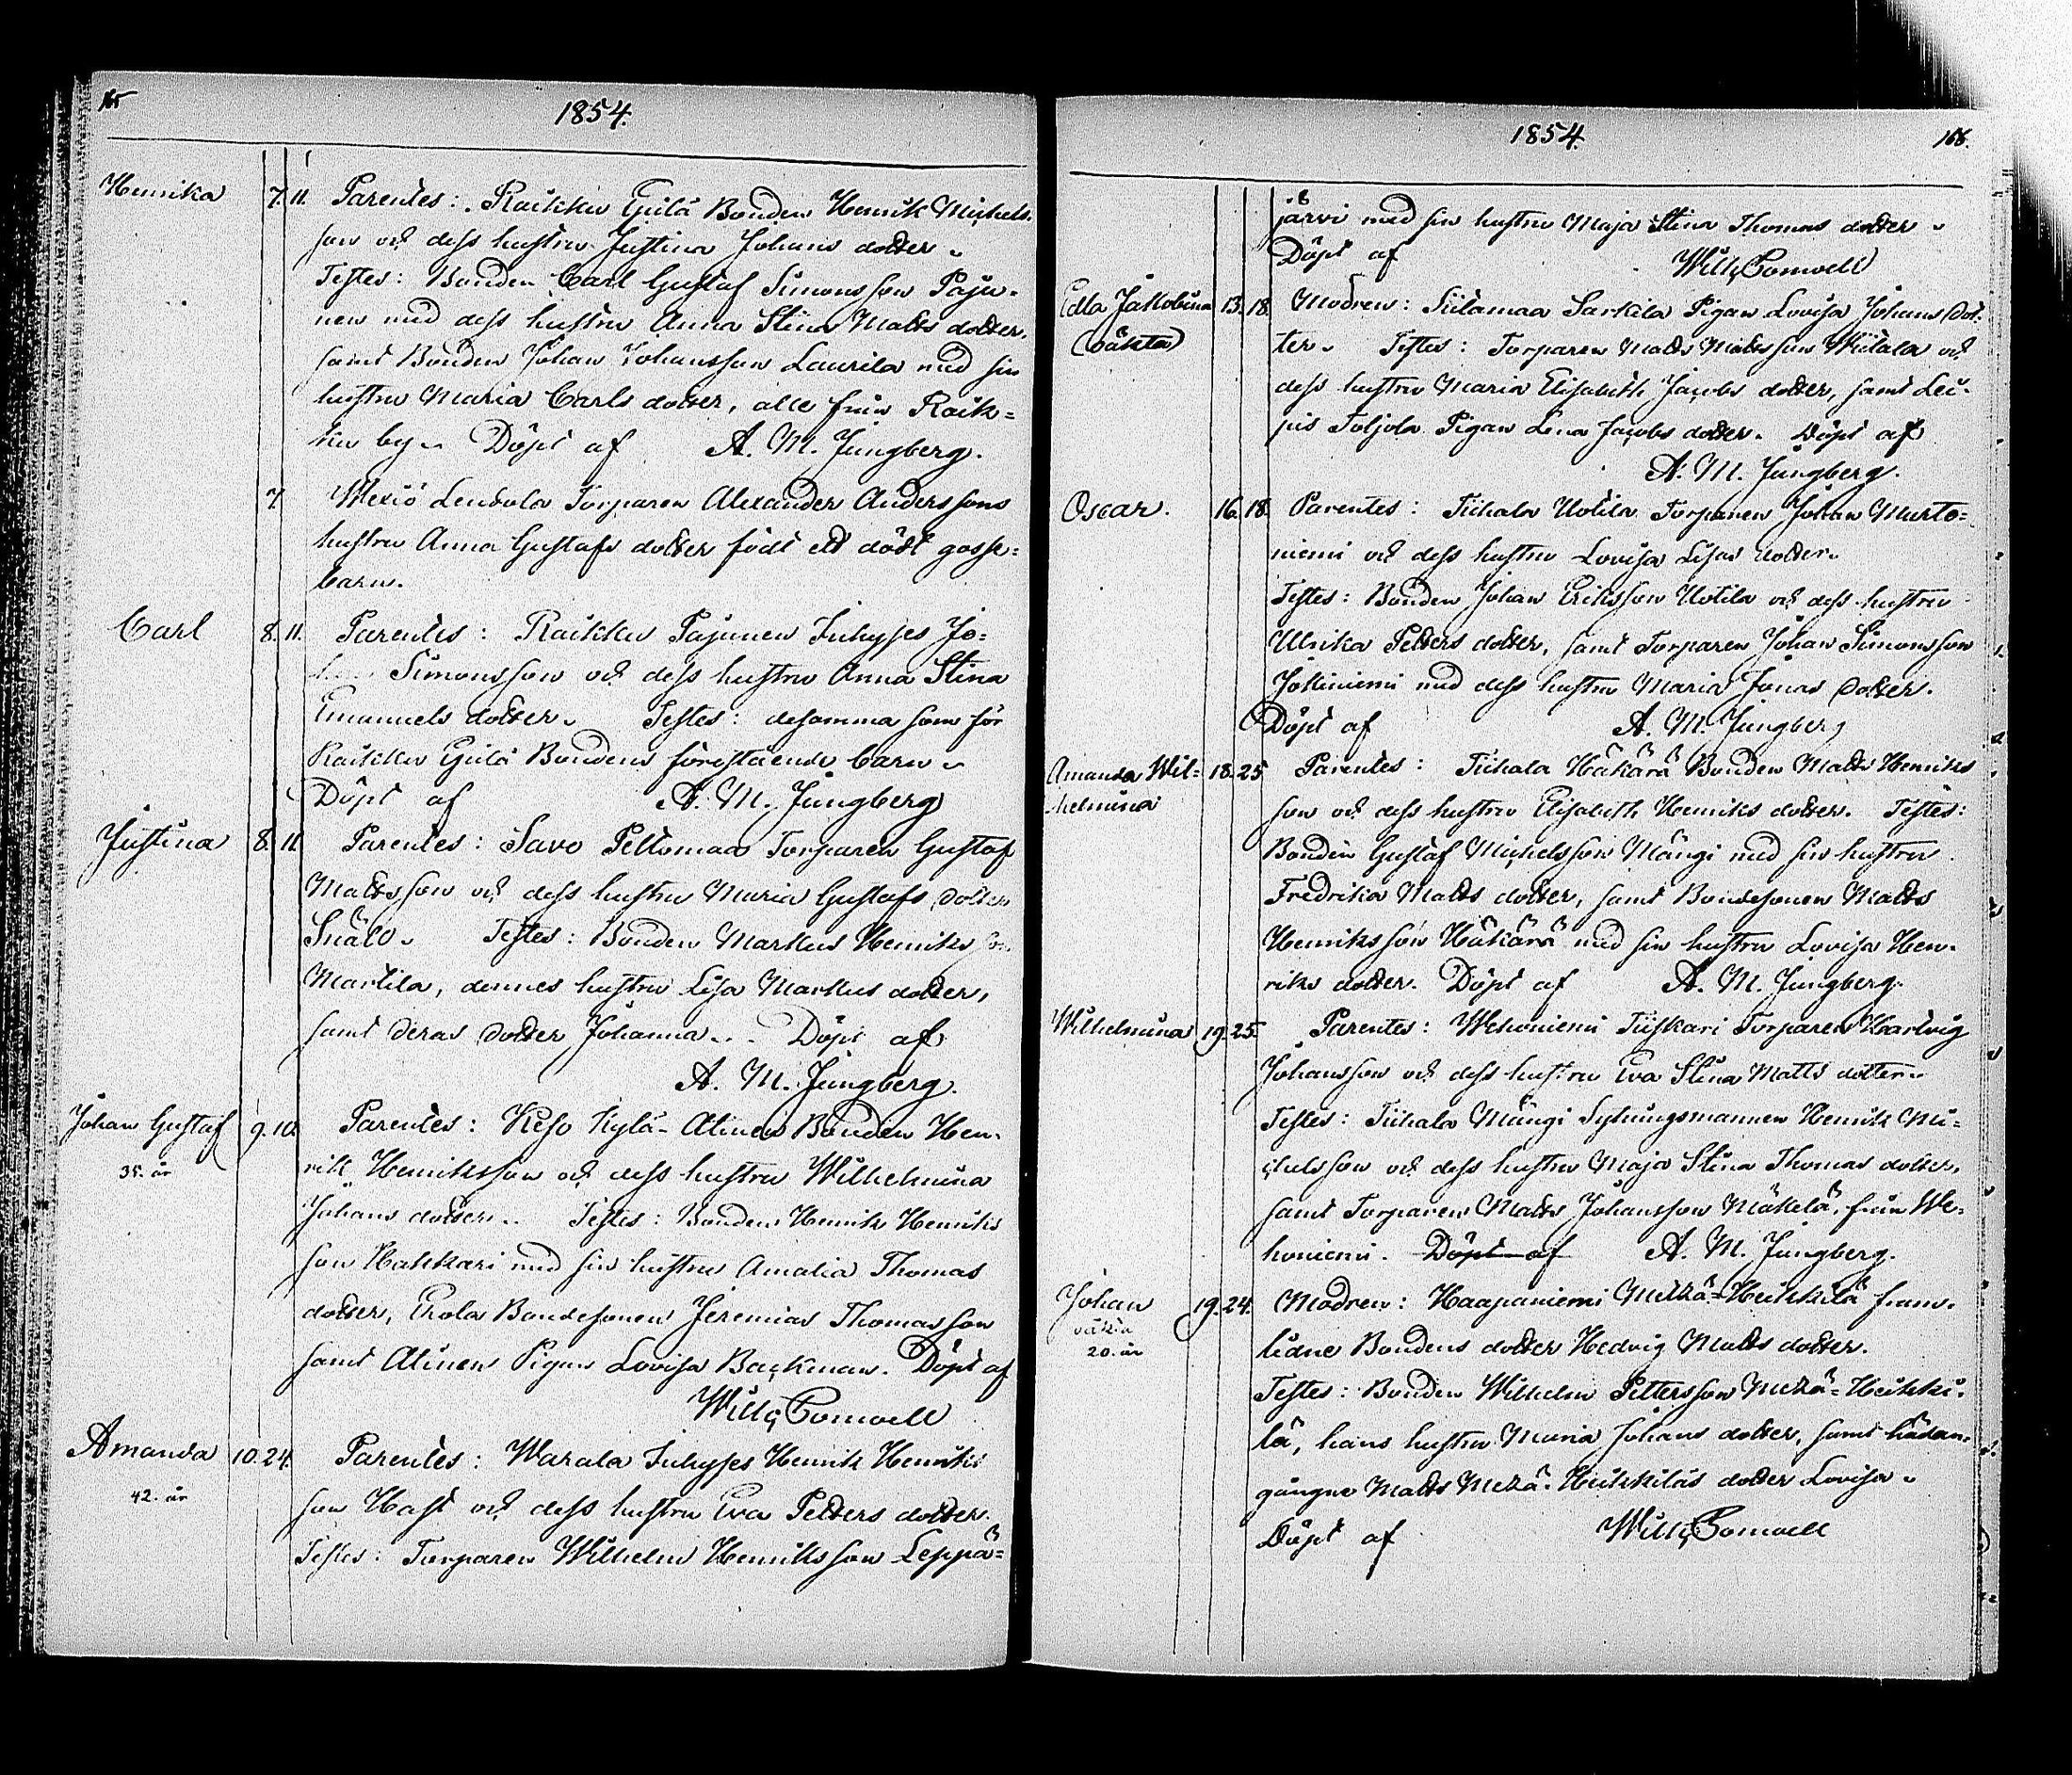 165
1854.
Henrika 7. 11. Parentes: Raikku Eeilä Bonden Henrik Michels-
son och dess hustru Justina Johans dotter.
Testes: Bonden Carl Gustaf Simonsson Paju-
nen med dess hustru Anna Stina Matts dotter,
samt Bonden Johan Johansson Laurila med sin
hustru Maria Carls dotter, alle från Raik-
ku by. Döpt af A. M. Jungberg.
7. Wexiö Lendola Torparen Alexander Anderssons
hustru Anna Gustafs dotter födt ett dödt gosse-
barn.
Carl 8. 11. Parentes: Raikku Pajunen Inhyses Jo-
han Simonsson och dess hustru Anna Stina
Emanuels dotter. Testes: desamma som för
Raikku Eeilä Bondens förestående barn.
Döpt af A. M. Jungberg
Justina 8. 11. Parentes: Savo Peltomaa Torparen Gustaf
Mattsson och dess hustru Maria Gustafs dotter
Snäll. Testes: Bonden Markus Henriksson
Marttila, dennes hustru Lisa Markus dotter,
samt deras dotter Johanna. Döpt af
A. M. Jungberg.
Johan Gustaf 9. 10. Parentes: Keso Kylä-Alinen Bonden Hen-
35. år rik Henriksson och dess hustru Wilhelmina
Johans dotter. Testes: Bonden Henrik Henriks
son Hakkari med sin hustru Amalia Thomas
dotter, Erola Bondesonen Jeremias Thomasson
samt Alinen Pigan Lovisa Backman. Döpt af
Willg Pomoell
Amanda 10. 24. Parentes: Warala Inhyses Henrik Henriks
42. år son Hast och dess hustru Eva Petters dotter.
Testes: Torparen Wilhelm Henriksson Leppä-
1854.
166.
järvi med sin hustru Maja Stina Thomas dotter.
Döpt af Willg Pomoell
Edla Jakobina 13. 18. Modren: Siitamaa Sarkila Pigan Lovisa Johans dot-
(oäkta) ter. Testes: Torparen Matts Mattsson Wiitala och
dess hustru Maria Elisabeth Jacobs dotter, samt Lei-
pis Toljola Pigan Lena Jacobs dotter. Döpt af
A. M. Jungberg.
Oscar. 16. 18. Parentes: Tiihala Uotila Torparen Johan Murto-
niemi och dess hustru Lovisa Lisas dotter.
Testes: Bonden Johan Eriksson Uotila och dess hustru
Ulrika Petters dotter, samt Torparen Johan Simonsson
Jokiniemi med dess hustru Maria Jonas dotter.
Döpt af A. M. Jungberg
Amanda Wil- 18. 25 Parentes: Tiihala Häkärä Bonden Matts Henriks
helmina son och dess hustru Elisabeth Henriks dotter. Testes:
Bonden Gustaf Michelsson Mängi med sin hustru
Fredrika Matts dotter, samt Bondesonen Matts
Henriksson Häkärä med sin hustru Lovisa Hen-
riks dotter. Döpt af A. M. Jungberg.
Wilhelmina 19. 25. Parentes: Wehoniemi Tiiskari Torparen Hartvig
Johansson och dess hustru Eva Stina Matts dotter.
Testes: Tiihala Mängi Sytningsmannen Henrik Mi-
chelsson och dess hustru Maja Stina Thomas dotter,
samt Torparen Matts Johansson Mäkelä, från We-
honiemi. Döpt af A. M. Jungberg.
Johan 19. 24. Modren: Haapaniemi Metzä-Heikkilä fram-
oäkta lidne Bondens dotter Hedvig Matts dotter.
20. år
Testes: Bonden Wilhelm Pettersson Metzä-Heikki-
lä, hans hustru Maria Johans dotter, samt hädan-
gångne Matts Metzä-Heikkiläs dotter Lovisa.
Döpt af Willg Pomoell